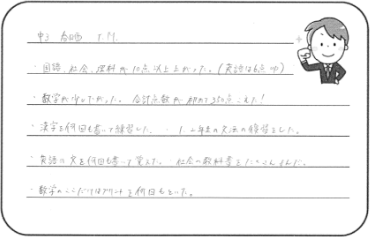 中3
・国語、社会、理科が10点以上上がった。(英語は6点up)
・数学が少し下がった。合計点数が初めて350点こえた!
・漢字を何回も書いて練習した。・1、2年生の文法の練習をした。
・英語の文を何回も書いて覚えた。社会の教科書をたくさん読んだ。
・数学のプリントを何回もといた。